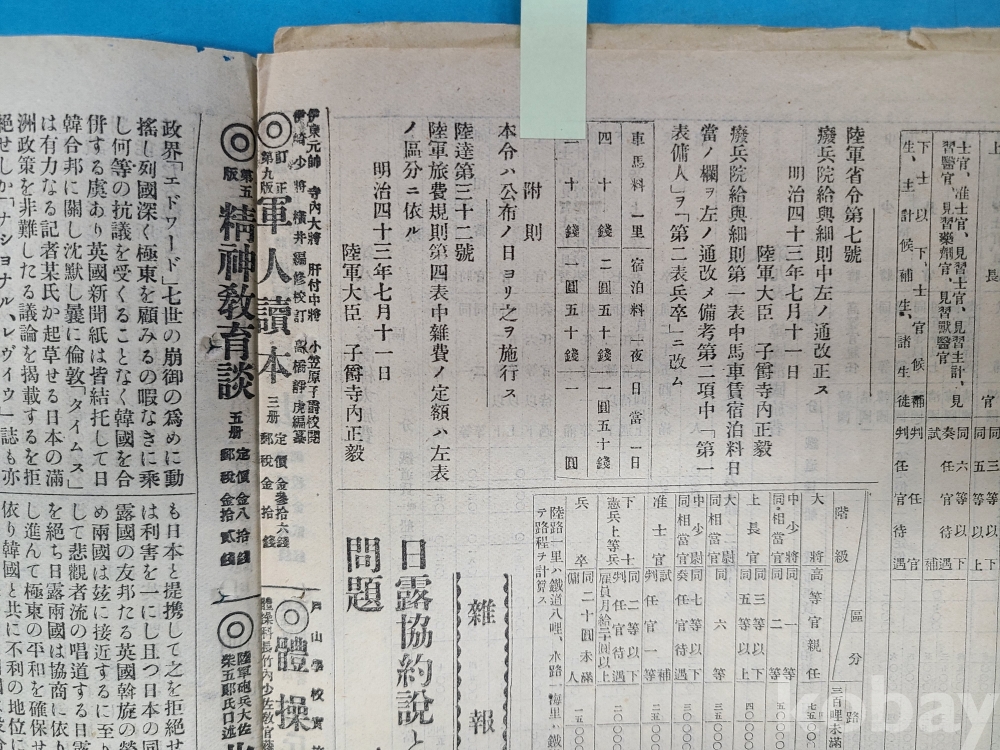 上長官
士官、准士官、見習士官、見習主計、見
習醫官、見習藥劑官、見習獸醫官
下士以下、下士官候補
生、主計候補生、諸生徒
同三等以上
同五等以下
同六等以下
奏任官待遇
判任官
判任官待遇
陸軍省令第七號
癈兵院給與細則中左ノ通改正ス
明治四十三年七月十一日
陸軍大臣 子爵寺內正毅
癈兵院給與細則第一表中馬車賃宿泊料日
當ノ欄ヲ左ノ通改メ備考第二項中「第一
表傭人」ヲ「第二表兵卒」ニ改ム
車馬料一里 宿泊料一夜 日當一日
四十錢 二圓五十錢 一圓五十錢
二十錢 一圓五十錢 一圓
附則
本令ハ公布ノ日ヨリ之ヲ施行ス
陸達第三十二號
陸軍旅費規則第四表中雜費ノ定額ハ左表
ノ區分ニ依ル
明治四十三年七月十一日
陸軍大臣 子爵寺內正毅
階級 區分
大將 高等官親任
中少將 同一等
同相當官 同二等
上長官 同三等以下
同五等以上
大尉
同相當官 同六等
中少尉 同七等以下
同相當官 奏任官待遇
准士官 判任官一等
下士 同二等以下
憲兵上等兵 判任官待遇
兵卒 傭人
同二十圓未滿
陸路一里ハ鐵道八哩、水路一海里
テ路程ヲ計算ス
三百哩未滿
雜報
日露協約說と
問題
伊東元帥 寺內大將 肝付中將 小笠原子爵校閱
伊崎少將 橫井編修校訂 高橋靜虎編纂
◎訂正第九版 軍人讀本 三册 定價金參拾六錢 郵稅金拾錢
◎第五版 精神敎育談 五册 定價金八拾錢 郵稅金拾貳錢
戶山學校
體操科長竹內少佐
◎體操
◎陸軍砲兵大佐
柴五郎氏口述
政界「エドワード」七世の崩御の爲めに動
搖し列國深く極東を顧みるの暇なきに乘
し何等の抗議を受くることなく韓國を合
併する虞あり英國新聞紙は皆結托して日
韓合邦に關し沈默し曩に倫敦「タイムス」
は有力なる記者某氏か起草せる日本の滿
洲政策を非難したる議論を揭載するを拒
絕せしか「ナショナル、レヴィウ」誌も亦
も日本と提携して之を拒絕せ
は利害を一にし且つ日本の同
露國の友邦たる英國斡旋の勞
め兩國は玆に接近するに至り
して悲觀者流の唱道する日露
を絕ち日露兩國は協商に依り
し進んて極東の平和を確保せ
依り韓國と共に不利の地位に
kobay